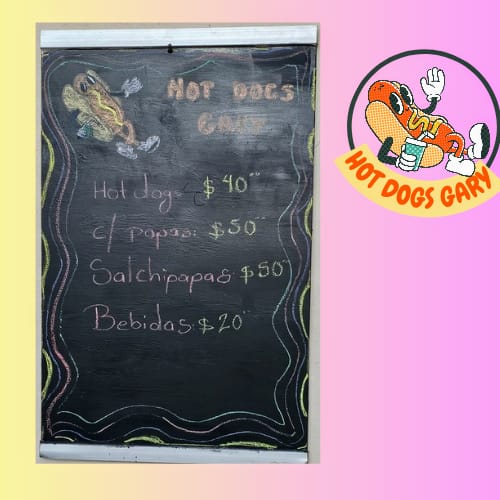 HOT DOGS
GARY
Hot dogs $40°°
c/ papas: $50°°
Salchipapas: $50°°
Bebidas: $20°°
HOT DOGS GARY